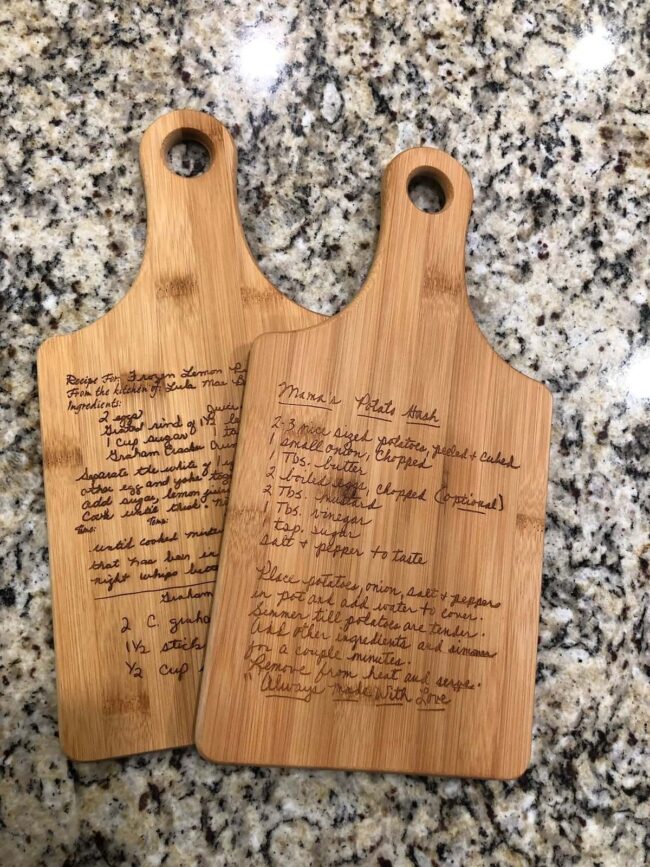 Recipe For: Frozen Lemon
From the kitchen of: Lula Mae
Ingredients:
2 eggs
Juice
Grated rind of 1½
1 cup sugar
Graham Cracker
Separate the white of 1
other egg and yoke
add sugar, lemon juice
Cook until thick.
until cooked
that has been in
night whips
Graham
2 C.
1½ stick
½ cup
Mama's Potato Hash
2-3 nice sized potatoes, peeled + cubed
1 small onion, chopped
1 Tbs. butter
2 boiled eggs, chopped (optional)
2 Tbs. mustard
1 Tbs. vinegar
1 tsp. sugar
salt + pepper to taste
Place potatoes, onion, salt + peppers
in pot and add water to cover.
Simmer till potatoes are tender.
Add other ingredients and simmer
for a couple minutes.
Remove from heat and serve.
"Always Made With Love